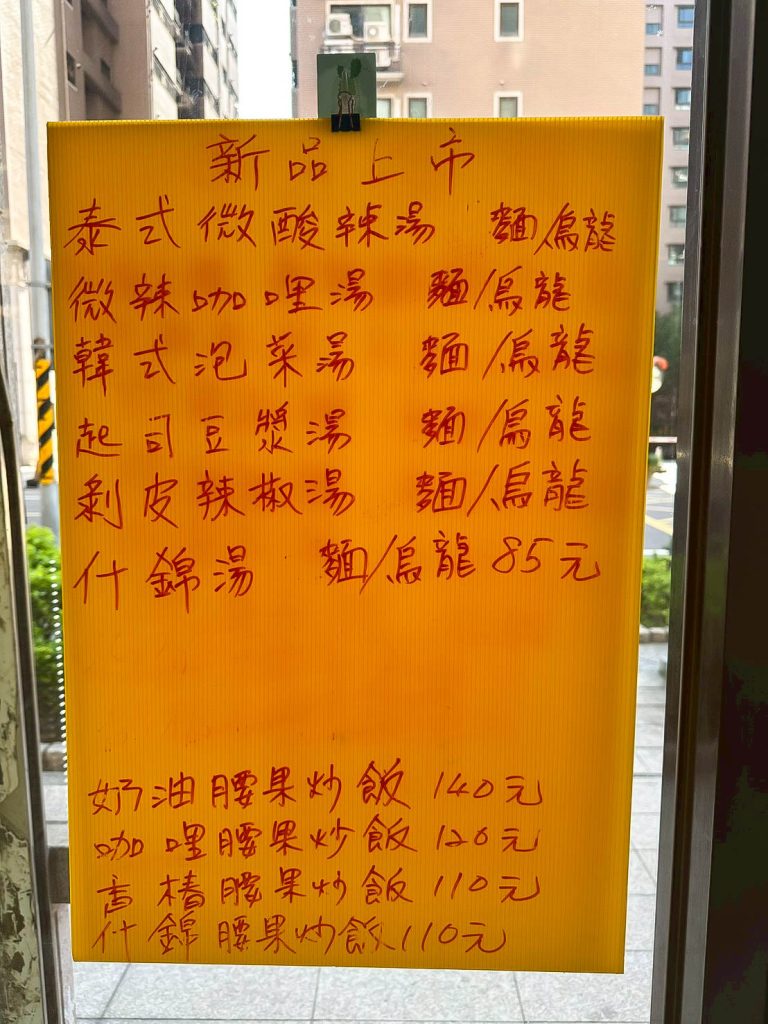 新品上市
泰式微酸辣湯 麵/烏龍
微辣咖哩湯 麵/烏龍
韓式泡菜湯 麵/烏龍
起司豆漿湯 麵/烏龍
剝皮辣椒湯 麵/烏龍
什錦湯 麵/烏龍 85元
奶油腰果炒飯 140元
咖哩腰果炒飯 120元
香椿腰果炒飯 110元
什錦腰果炒飯 110元